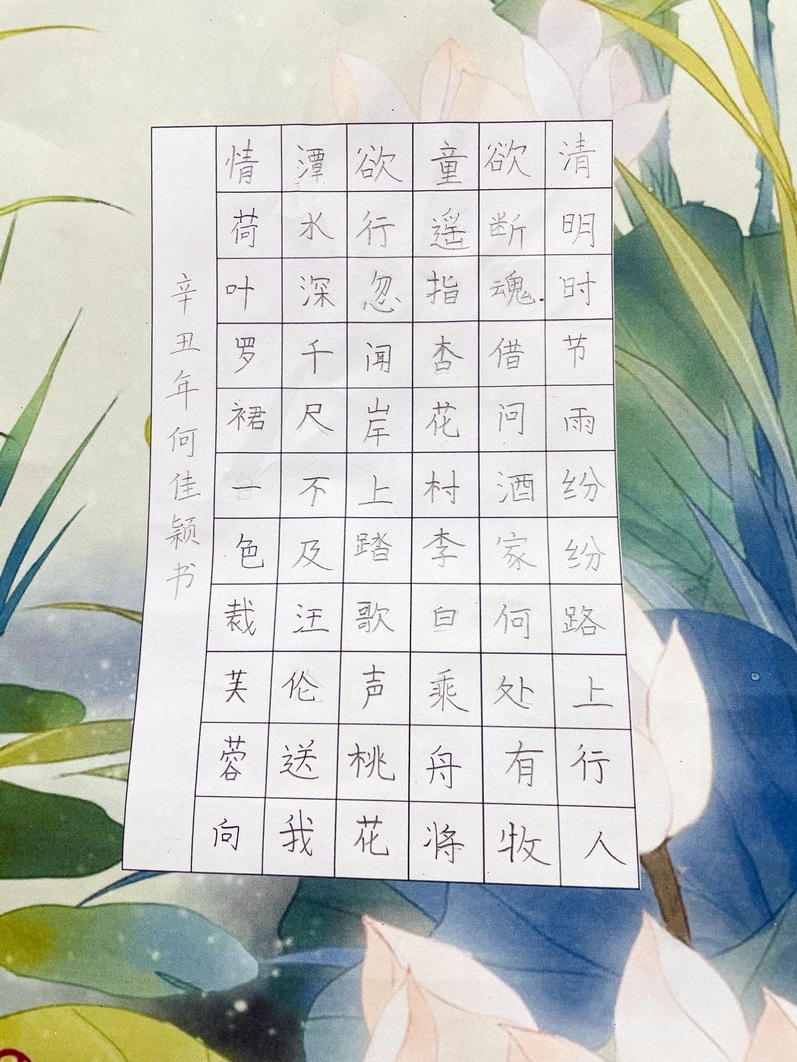 清明时节雨纷纷路上行人
欲断魂.借问酒家何处有牧
童遥指杏花村李白乘舟将
欲行忽闻岸上踏歌声桃花
潭水深千尺不及汪伦送我
情荷叶罗裙一色裁芙蓉向
辛丑年何佳颖书